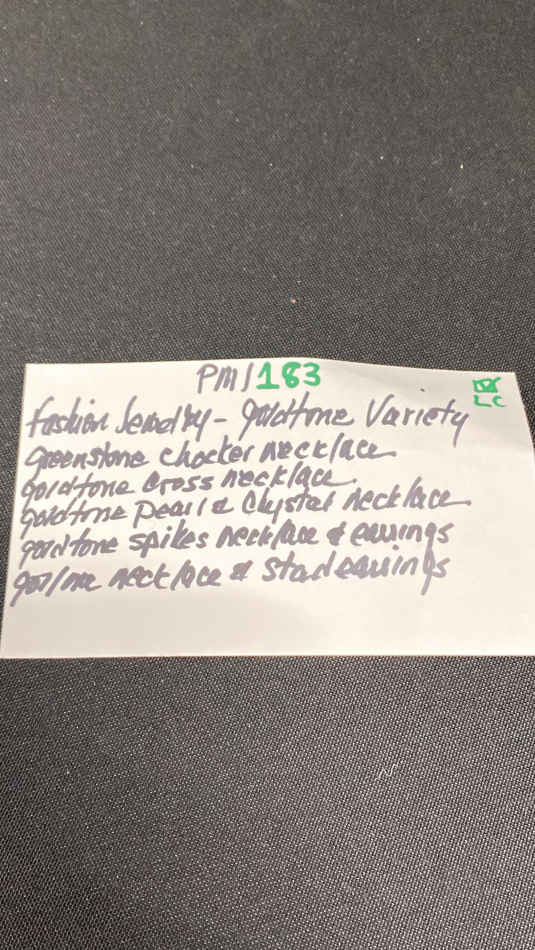 PM/183
LC
Fashion Jewelry - goldtone Variety
greenstone chocker necklace
goldtone cross necklace
goldtone pearl & Chystal necklace
goldtone spikes necklace & earrings
necklace & stud earrings